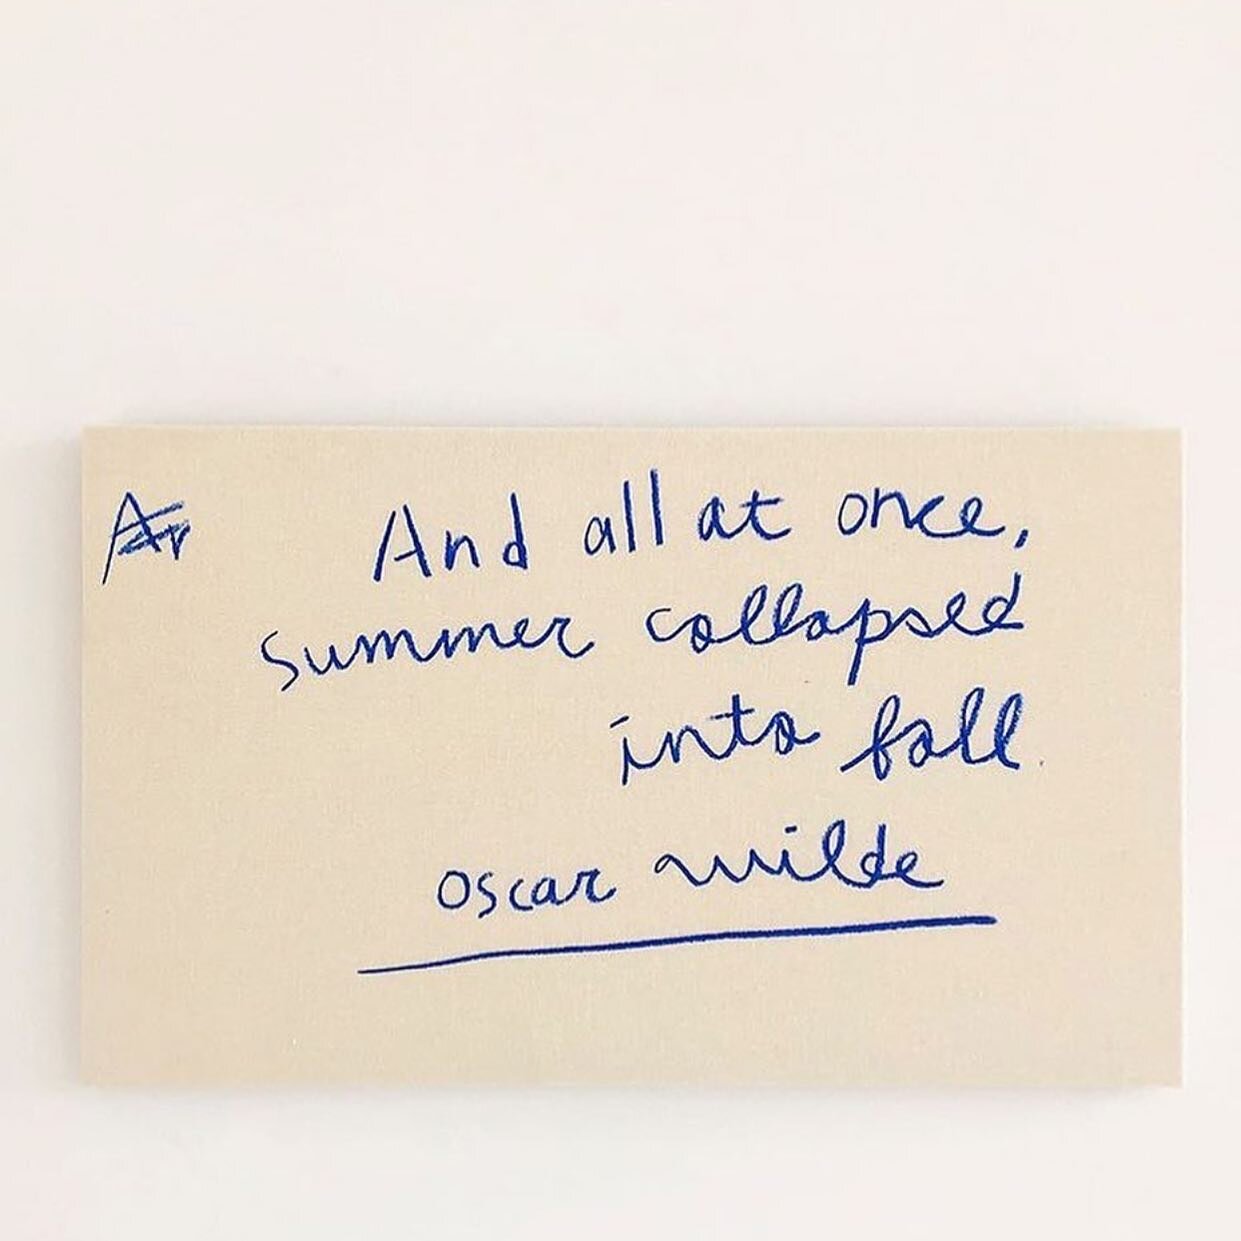 And all at once,
summer collapsed
into fall.
oscar wilde